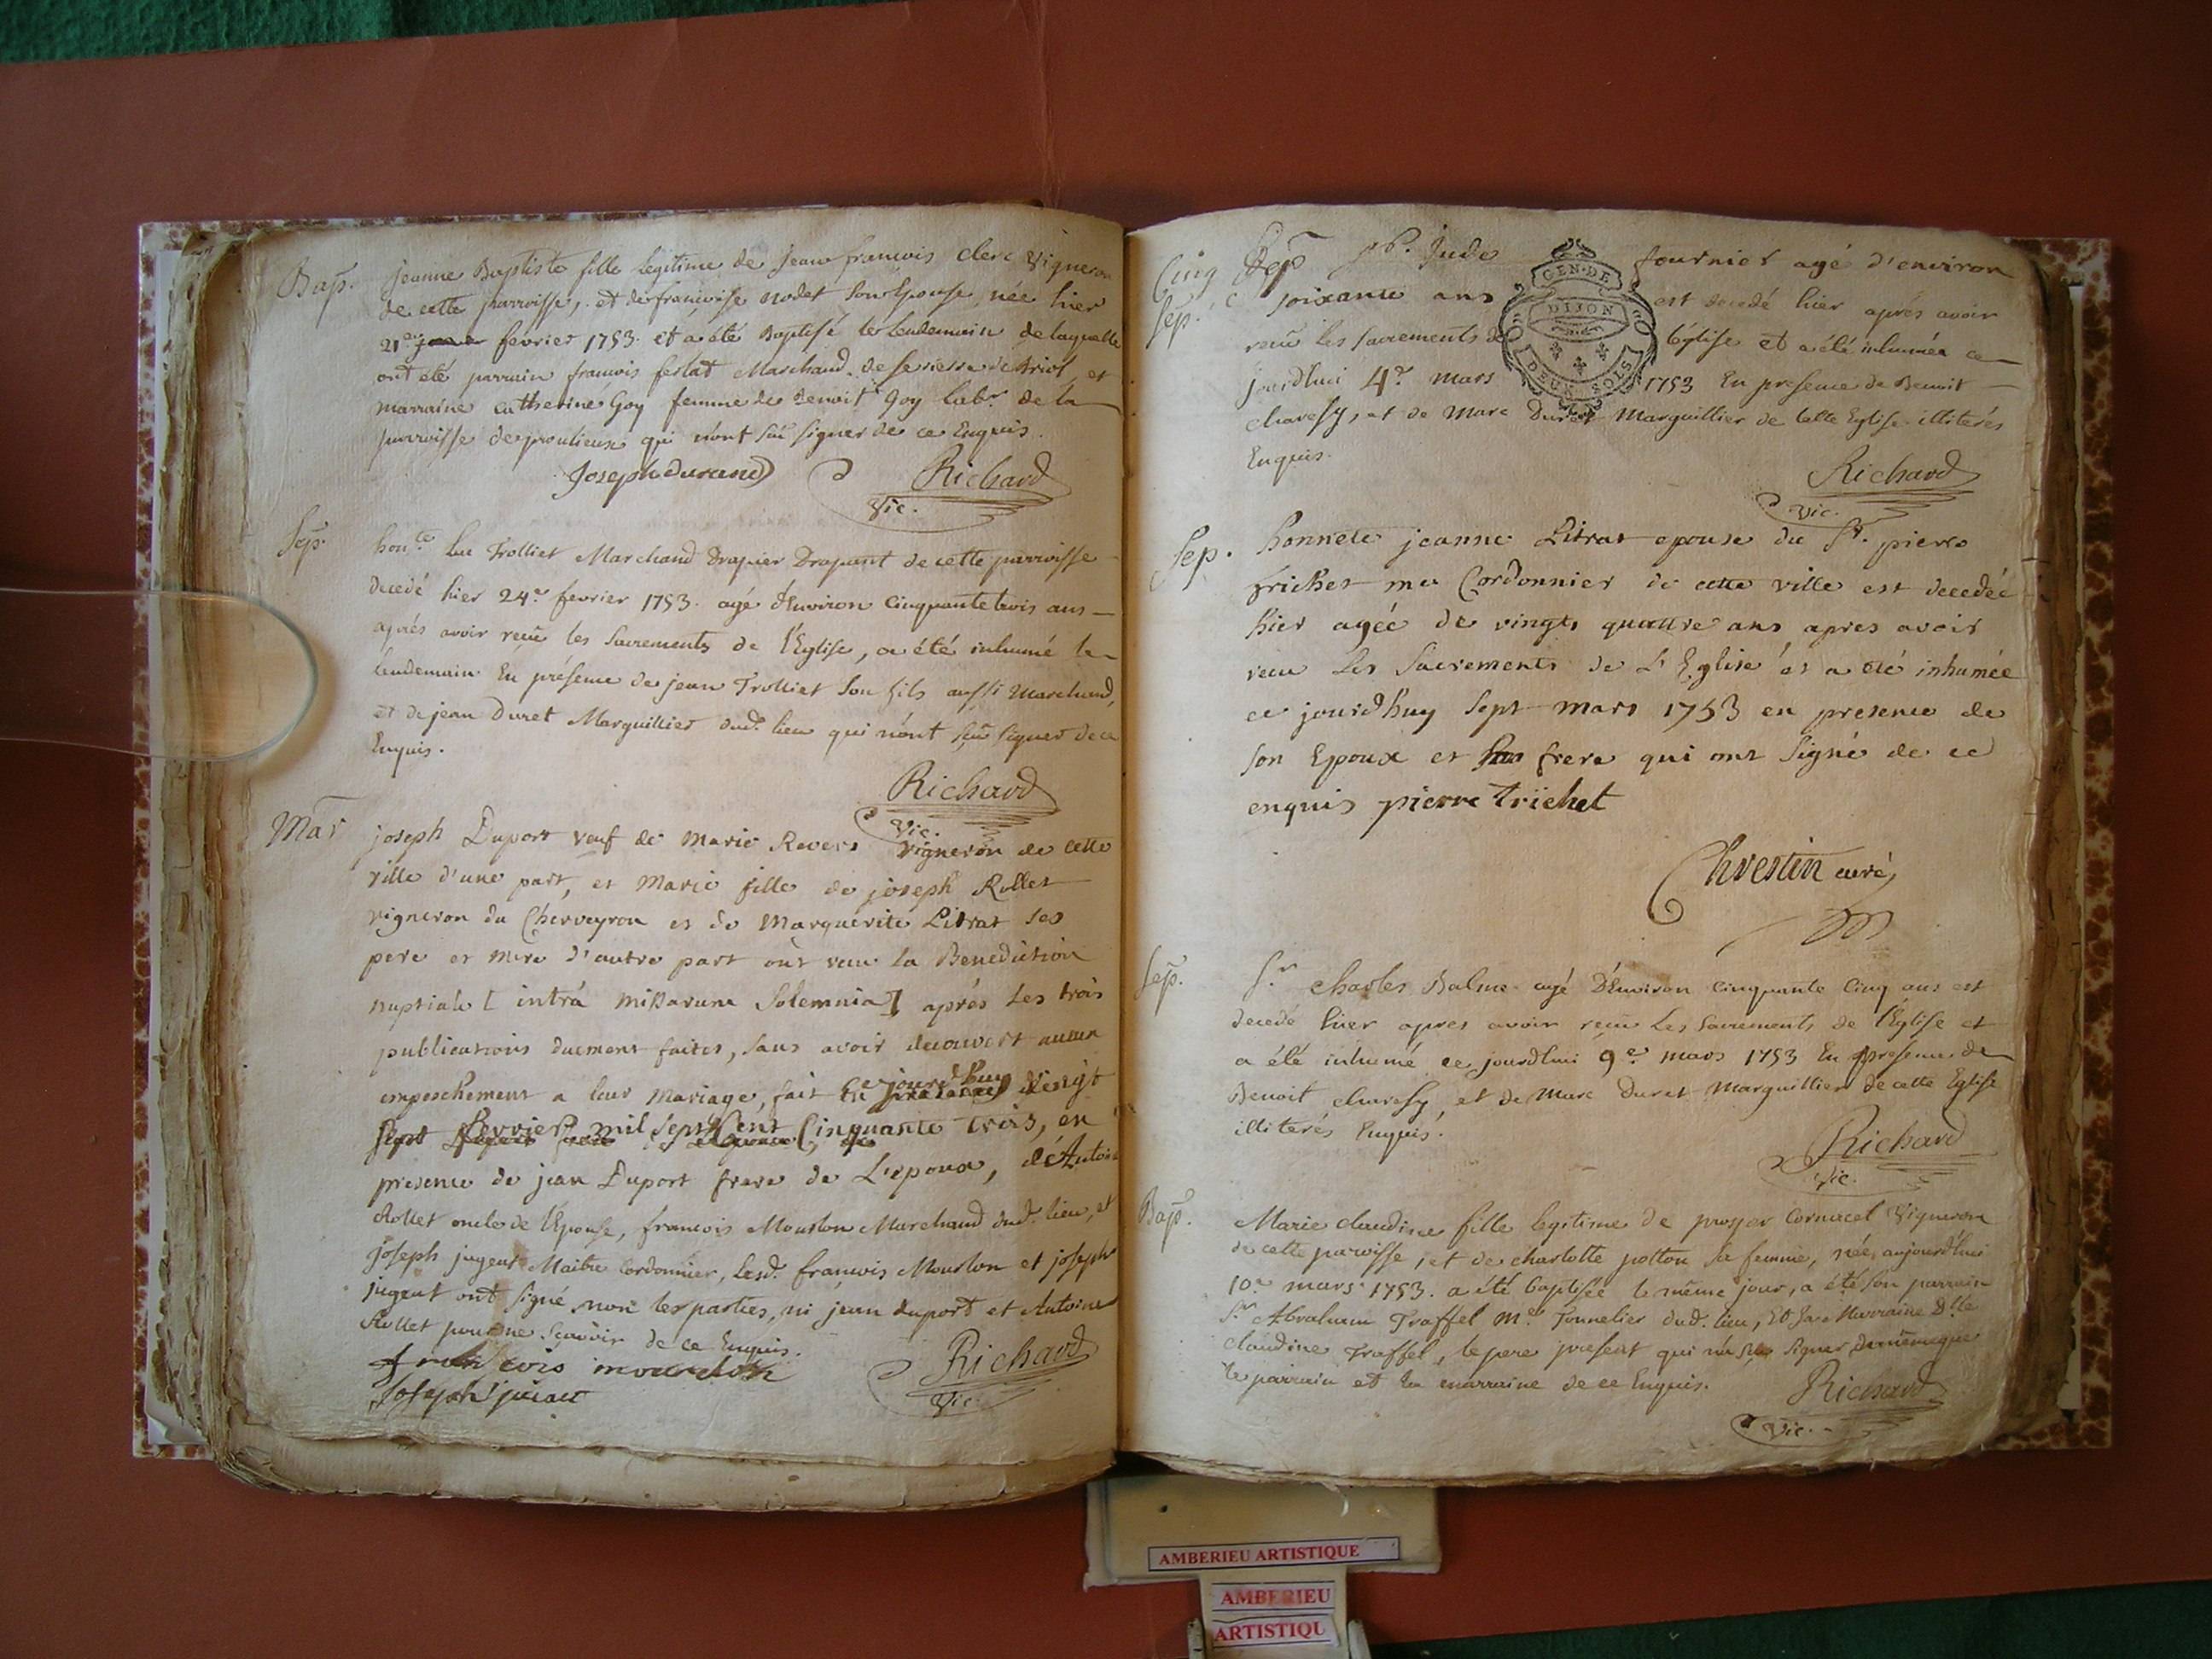 Bap. Jeanne Baptiste fille legitime de Jean francois clerc Vigneron
de cette parroisse, et de francoise nodet son Epouse, née hier
21e fevrier 1753. et a été Baptisé le lendemain de laquelle
ont été parrain francois ferlat Marchand de et
marraine catherine Goy femme de Benoit Goy labr. de la
parroisse de proulieux qui n'ont sçu signer de ce Enquis.
Joseph durand Richard
Vic.
Sep. honte. Luc Trolliet Marchand Drapier Drapant de cette parroisse
decedé hier 24e fevrier 1753. agé d'Environ Cinquante trois ans
aprés avoir reçu les Sacrements de l'Eglise, a été inhumé le
lendemain En présence de jean Trolliet son fils aussi Marchand,
et de jean Duret Marguillier dud. lieu qui n'ont sçu signer de ce
Enquis.
Richard
Vic.
Mar joseph Duport veuf de Marie Revers vigneron de cette
ville d'une part, et Marie fille de joseph Rollet
vigneron du Cherveyron et de Marguerite Litrat ses
pere et mere d'autre part ont recu la Benediction
nuptiale [ intrà missarum Solemnia ] aprés les trois
publications duement faites, sans avoir decouvert aucun
empeschement a leur mariage, fait ce jourd'huy vingt
sept fevrier mil sept Cent Cinquante trois, en
presence de jean Duport frere de L'epoux, d'Antoine
Rollet oncle de l'Epouse, francois Mourlon Marchand dud. lieu, et
Joseph jugent Maitre Cordonnier, Lesd. francois Mourlon et joseph
jugent ont signé non les parties, ni jean duport et Antoine
Rollet pour ne sçavoir de ce Enquis.
francois mourlon Richard
Joseph Vic.
Cinq Sep Jude fournier agé d'environ
Sep. soixante ans est decedé hier aprés avoir
GEN. DE
DIJON
DEUX SOLS
reçu les sacrements de l'église et a été inhumée ce
jourdhui 4e mars 1753 En presence de Benoit
charesy, et de Marc Duret Marguillier de cette Eglise illiterés
Enquis.
Richard
Vic.
Sep. honnete jeanne Litrat epouse du Sr. pierre
trichet me Cordonnier de cette ville est decedée
hier agée de vingts quattre ans apres avoir
recu Les Sacrements de L'Eglise et a été inhumée
ce jourdhuy Sept mars 1753 en presence de
son Epoux et frere qui ont signé de ce
enquis pierre trichet
Chrestin curé,
Sep. Sr. charles Balme agé D'Environ Cinquante Cinq ans est
decedé hier apres avoir reçu Les Sacrements de l'Eglise et
a été inhumé ce jourdhui 9e mars 1753 En présence de
Benoit charesy, et de Marc Duret Marguillier de cette Eglise
illiterés Enquis.
Richard
Vic.
Bap. Marie claudine fille legitime de prosper Cornucet Vigneron
de cette parroisse, et de charlotte potton sa femme, née aujourd'hui
10e mars 1753. a été baptisée le même jour, a été son parrain
Sr. Abraham Traffel me. Tonnelier dud. lieu, Et sa Marraine Dlle
claudine Traffel, le pere present qui n'a sçu signer
le parrain et la marraine de ce Enquis. Richard
Vic.
AMBERIEU ARTISTIQUE
AMBERIEU
ARTISTIQU